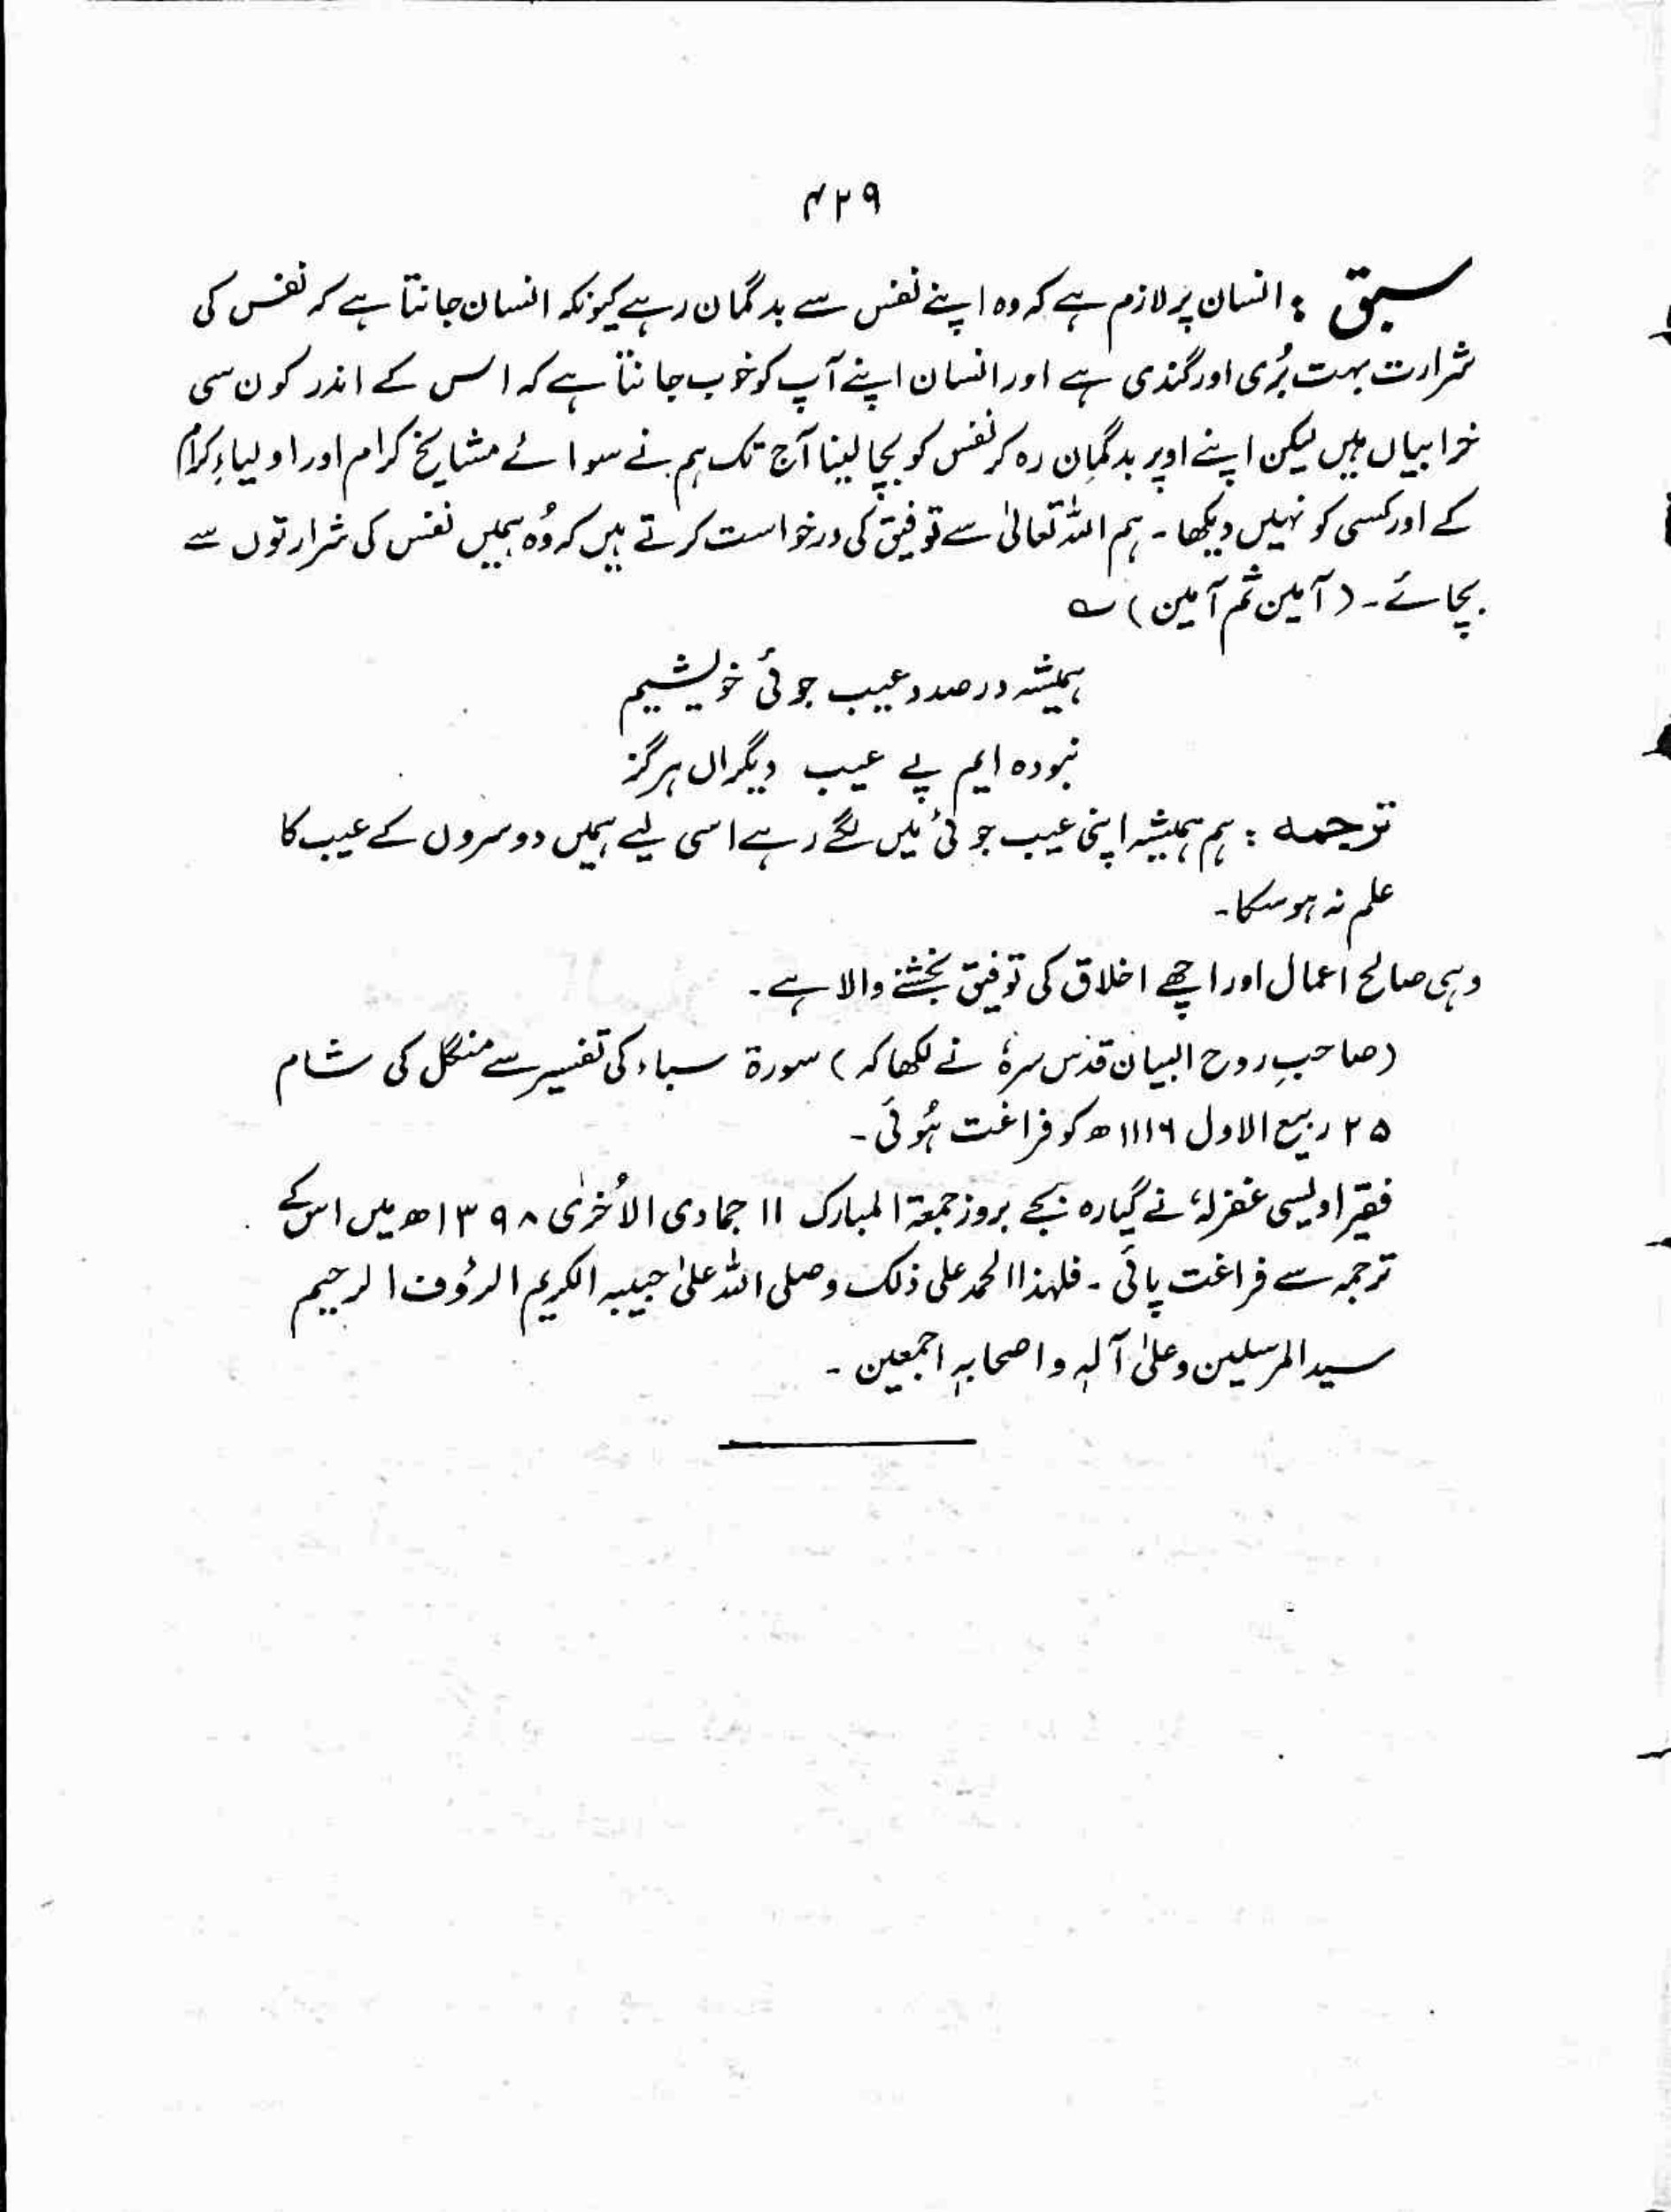 ۴۲۹
سبق : انسان پر لازم ہے کہ وہ اپنے نفس سے بدگمان رہے کیونکہ انسان جانتا ہے کہ نفس کی
شرارت بہت بُری اور گندی ہے اور انسان اپنے آپ کو خوب جانتا ہے کہ اس کے اندر کون سی
خرابیاں ہیں لیکن اپنے اوپر بدگمان رہ کر نفس کو بچا لینا آج تک ہم نے سوائے مشایخ کرام اور اولیاءِ کرام
کے اور کسی کو نہیں دیکھا۔ ہم اللہ تعالیٰ سے توفیق کی درخواست کرتے ہیں کہ وُہ ہمیں نفس کی شرارتوں سے
بچائے۔ (آمین ثم آمین) ؎
ہمیشہ درصدد عیب جوئی خویشیم
نبودہ ایم پے عیب دیگراں ہرگز
ترجمہ : ہم ہمیشہ اپنی عیب جوئی میں لگے رہے اسی لیے ہمیں دوسروں کے عیب کا
علم نہ ہو سکا۔
وہی صالح اعمال اور اچھے اخلاق کی توفیق بخشنے والا ہے۔
(صاحبِ روح البیان قدس سرہٗ نے لکھا کہ) سورۃ سباء کی تفسیر سے منگل کی شام
۲۵ ربیع الاول ۱۱۱۶ھ کو فراغت ہُوئی۔
فقیر اویسی غفرلہٗ نے گیارہ بجے بروز جمعۃ المبارک ۱۱ جمادی الاُخرٰی ۱۳۹۸ھ میں اس کے
ترجمہ سے فراغت پائی۔ فلہٰذا الحمد علی ذلک وصلی اللہ علیٰ حبیبہ الکریم الرؤف الرحیم
سید المرسلین وعلیٰ آلہٖ واصحابہٖ اجمعین۔